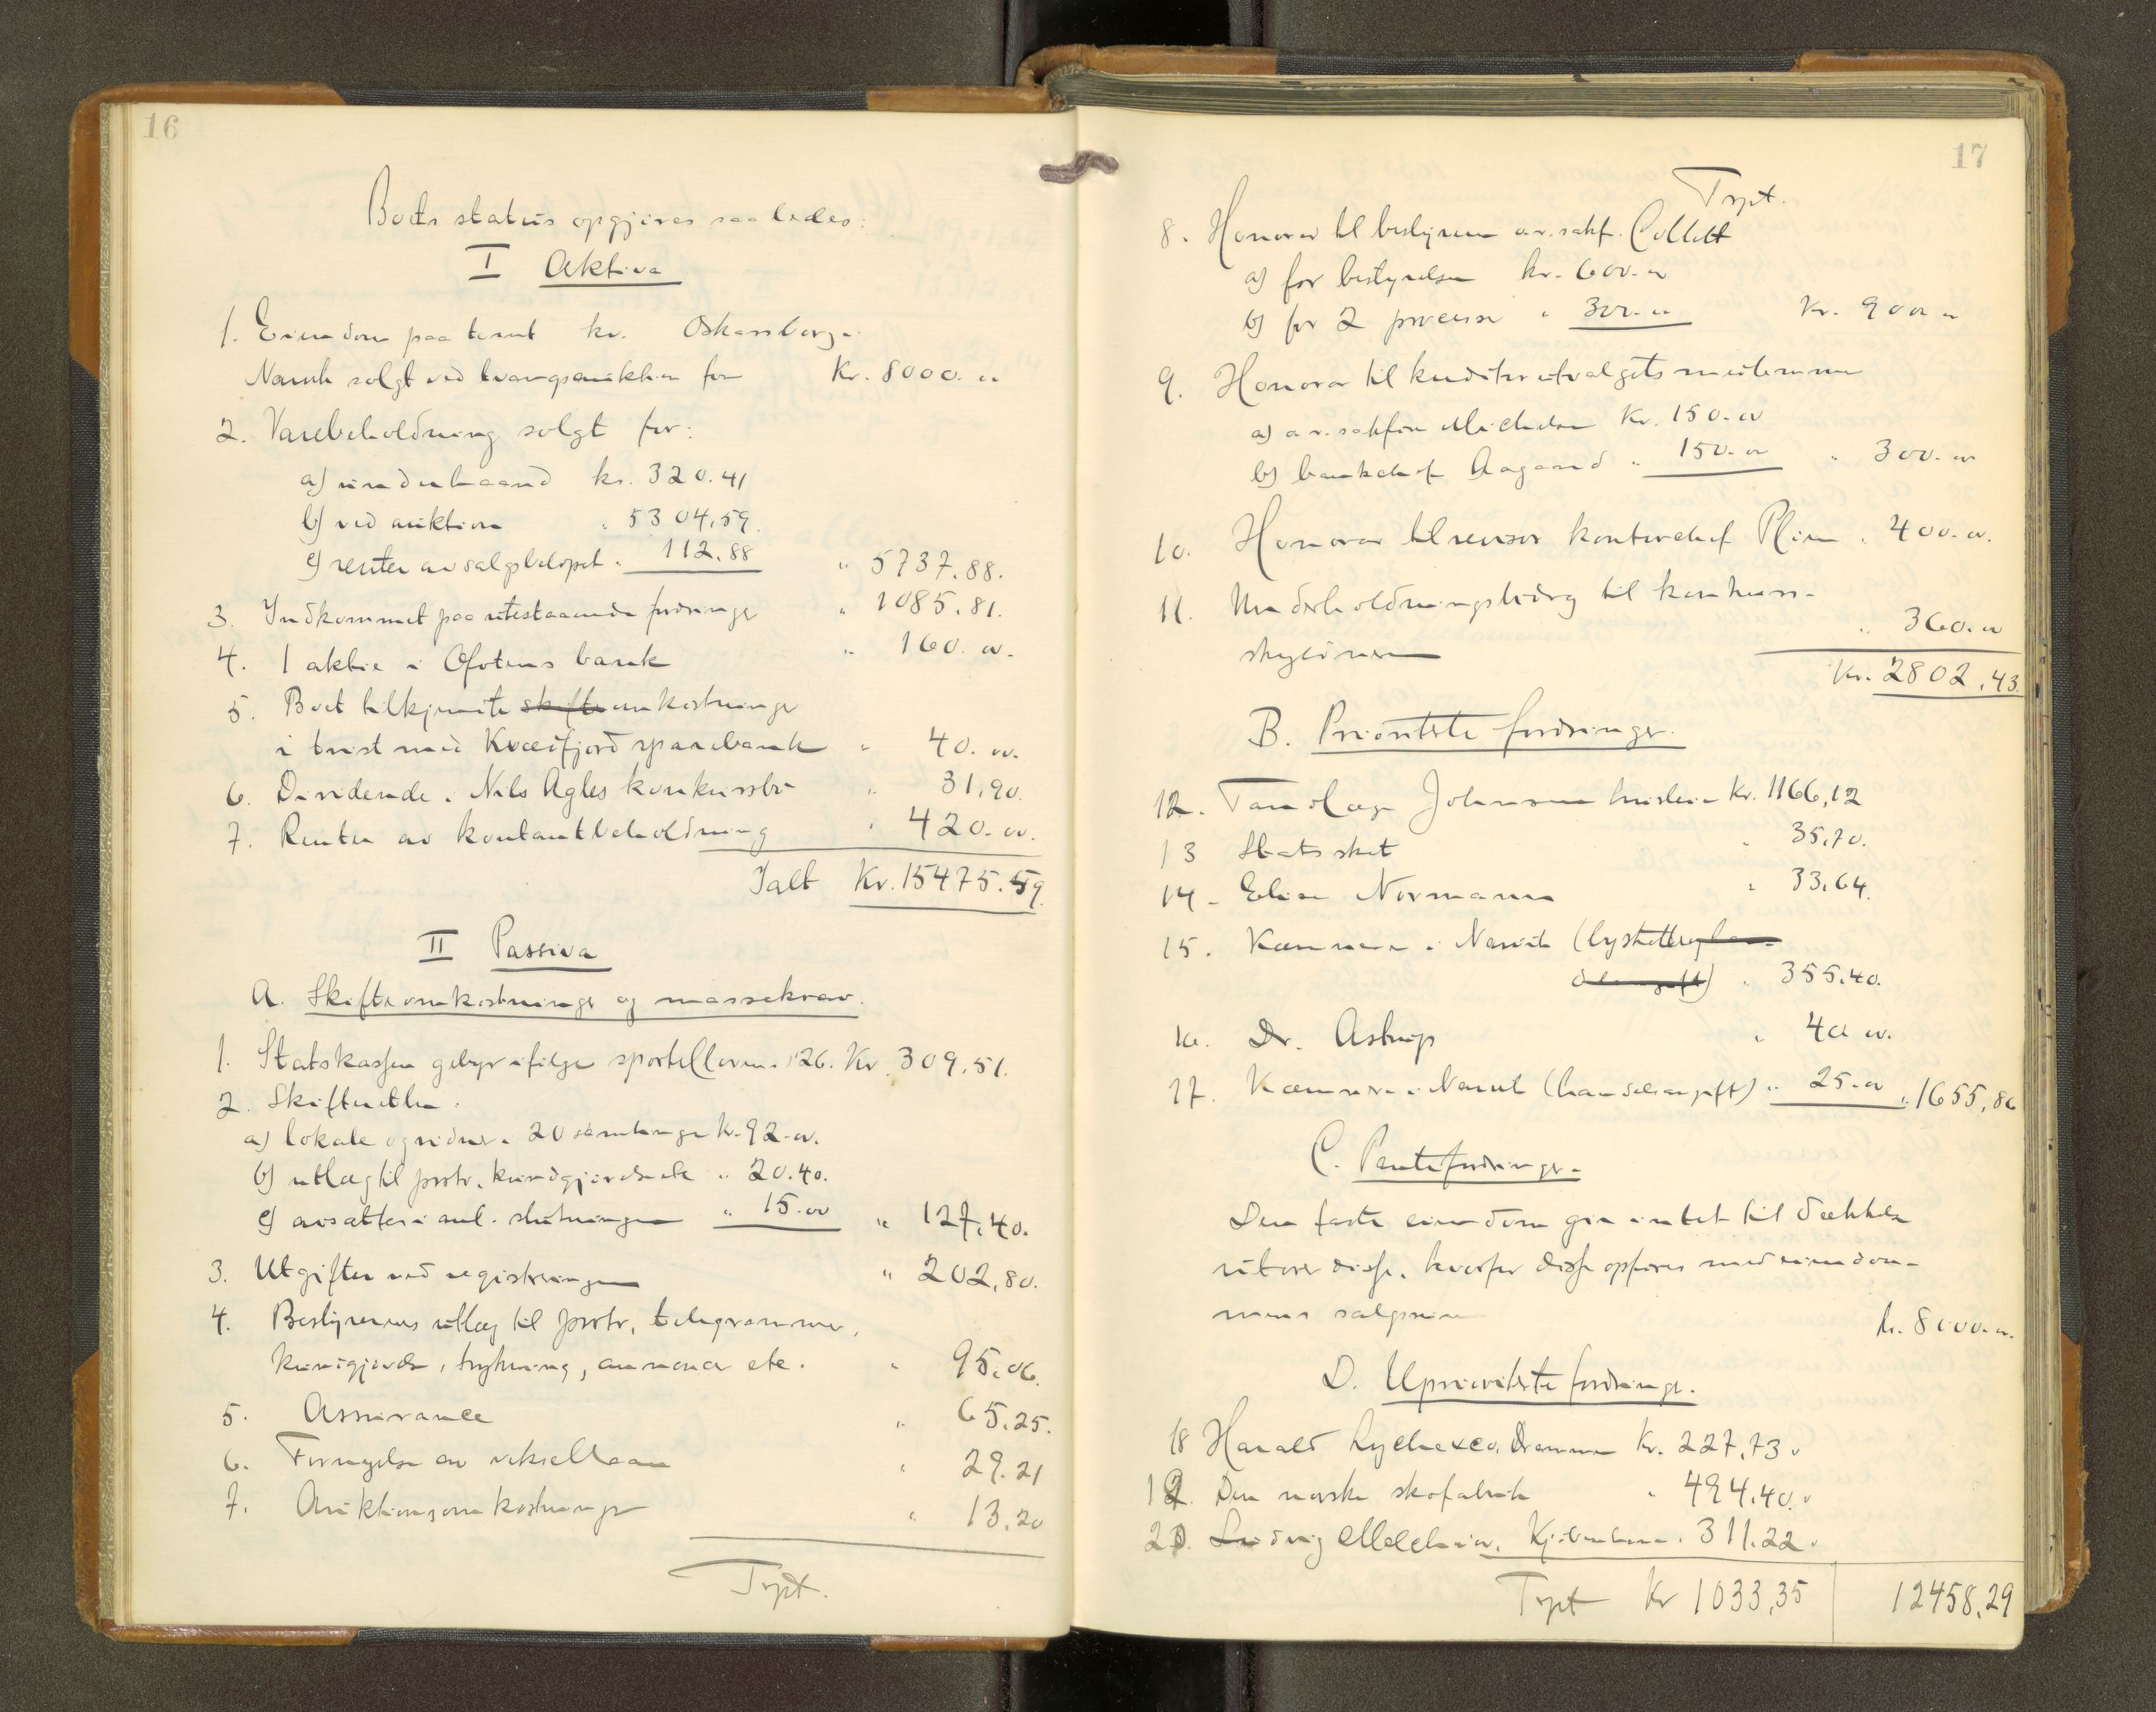 16
Boets status opgjøres saaledes:
I Aktiva
1. Eiendom paa tomt kv. Oskarsborg-
Narvik solgt ved tvangsauktion for Kr. 8000.00
2. Varebeholdning solgt for:
a) underhaand kr. 320.41
b) ved auktion " 5304,59.
c) renter av salgsbeløpet " 112.88 " 5737.88.
3. Indkommet paa utestaaende fordringer " 1085.81.
4. 1 aktie i Ofotens bank " 160.00.
5. Boet tilkjente skifte omkostninger
i tvist med Kvædfjord sparebank " 40.00.
6. Dividende i Nils Agles konkursbo " 31,90.
7. Renter av kontantbeholdning " 420.00.
Ialt Kr. 15475.59.
II Passiva
A. Skifteomkostninger og massekrav.
1. Statskassen gebyr ifølge sportelloven. 126. Kr. 309,51.
2. Skifteretten:
a) lokale og vidner i 20 samlinger kr. 92.00.
b) utlæg til porto, kundgjørelse etc " 20.40.
c) avsættes i anl. slutningen " 15.00 " 127,40.
3. Utgifter ved registreringen " 202,80.
4. Bestyrerens utlæg til porto, telegrammer,
kundgjørelse, trykning, annoncer etc. " 95.06.
5. Assurance " 65.25.
6. Fornyelse av veksellaan " 29.21
7. Auktionsomkostninger " 13.20
Trpt.
17
Trpt.
8. Honorar til bestyreren o.r.sakf. Collett
a) for bestyrelsen kr. 600.00
b) for 2 processer " 300.00 Kr. 900.00
9. Honorar til kreditorutvalgets medlemmer
a) o.r.sakfører Michelsen Kr. 150.00
b) bankchef Aagaard " 150.00 " 300.00
10. Honorar til revisor kontorchef Plien " 400.00.
11. Underholdningsbidrag til konkurs-
skyldneren " 360.00
Kr. 2802,43.
B. Prioriterte fordringer.
12. Tandlæge Johansen husleie Kr. 1166,12
13 Statsskat " 35,70.
14. Elise Normann " 33,64.
15. Kæmneren i Narvik (byskatt
) " 355.40.
16. Dr. Astrup " 40.00.
17. Kæmneren i Narvik (handelsavgift) " 25.00 " 1655,86
C. Pantefordringer.
Den faste eiendom gir intet til dækkelse
utover disse, hvorfor disse opføres med eiendom-
mens salgssum kr. 8000.00.
D. Uprioriterte fordringer.
18 Harald Lyche & Co. Drammen Kr. 227,73.
19. Den norske skofabrik " 494.40.
20. Ludvig Melchior, Kjøbenhavn " 311.22.
Trpt Kr 1033,35 12458,29